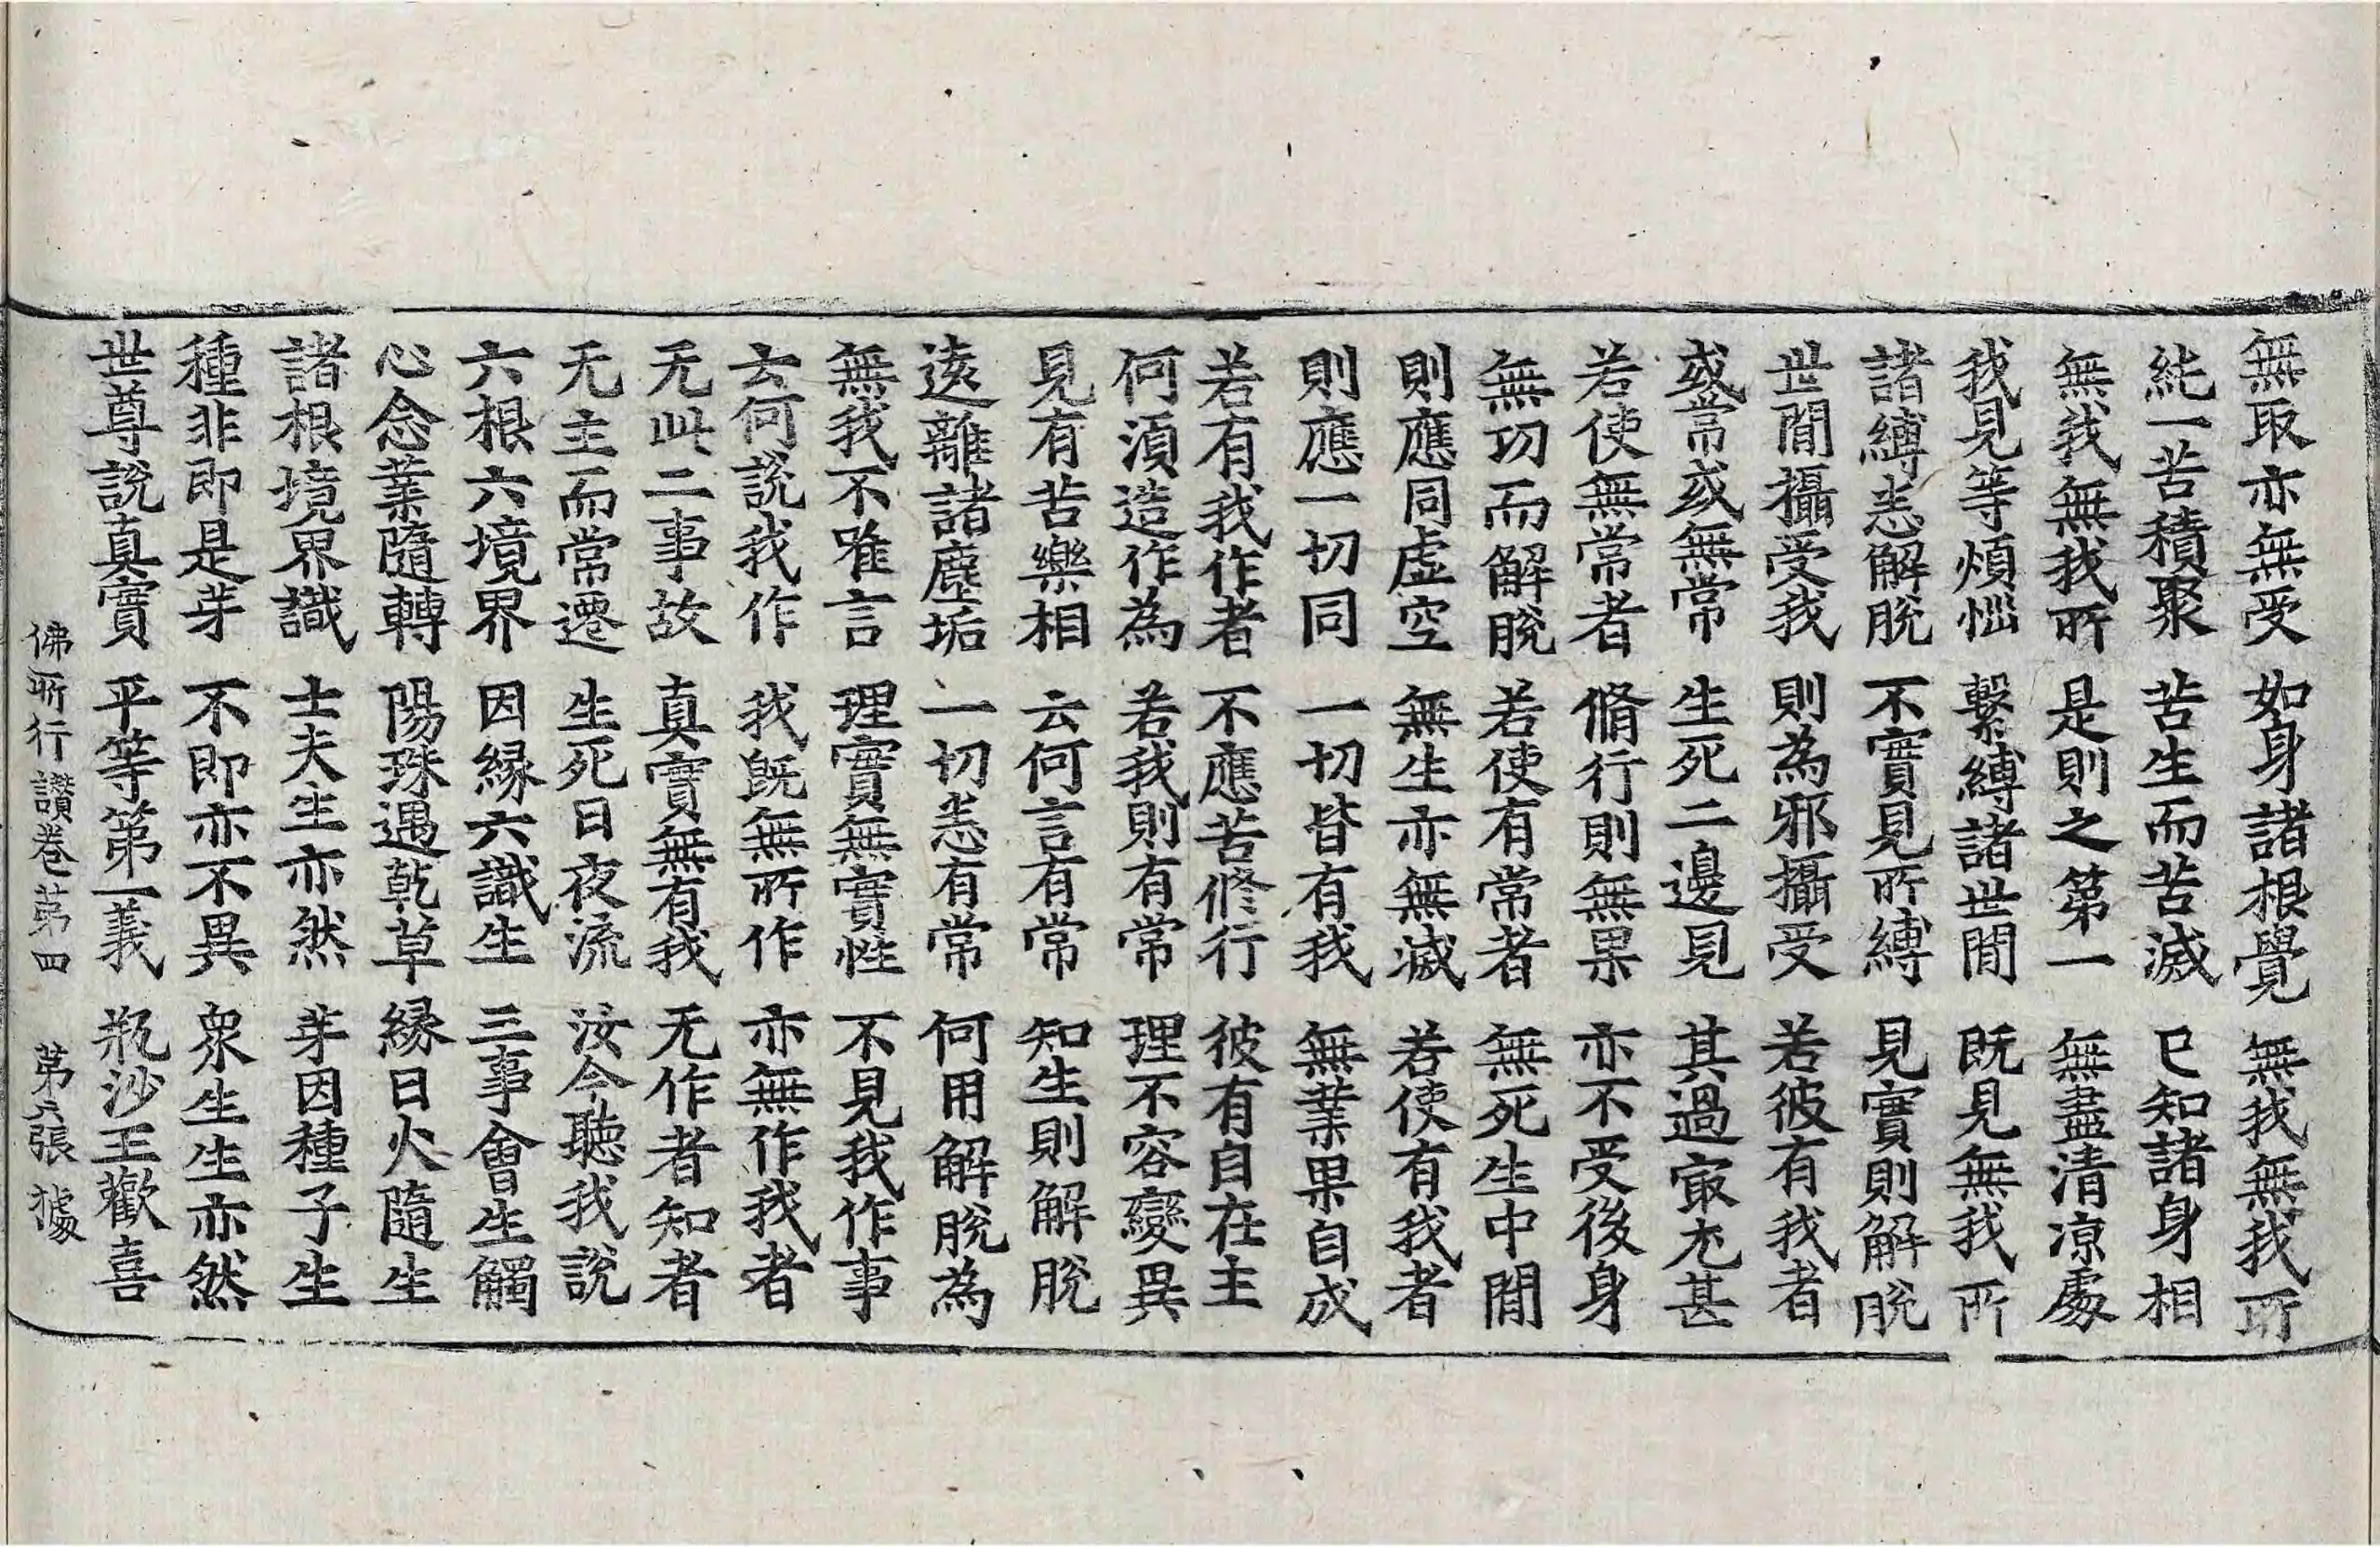 無取亦無受　如身諸根覺　無我無我所
純一苦積聚　苦生而苦滅　已知諸身相
無我無我所　是則之第一　無盡清涼處
我見等煩惱　繫縛諸世間　既見無我所
諸縛悉解脫　不實見所縛　見實則解脫
世間攝受我　則為邪攝受　若彼有我者
或常或無常　生死二邊見　其過寂尤甚
若使無常者　脩行則無果　亦不受後身
無功而解脫　若使有常者　無死生中間
則應同虛空　無生亦無滅　若使有我者
則應一切同　一切皆有我　無業果自成
若有我作者　不應苦修行　彼有自在主
何須造作為　若我則有常　理不容變異
見有苦樂相　云何言有常　知生則解脫
遠離諸塵垢　一切悉有常　何用解脫為
無我不唯言　理實無實性　不見我作事
云何說我作　我既無所作　亦無作我者
无此二事故　真實無有我　无作者知者
无主而常遷　生死日夜流　汝今聽我說
六根六境界　因緣六識生　三事會生觸
心念業隨轉　陽珠遇乾草　緣日火隨生
諸根境界識　士夫生亦然　芽因種子生
種非即是芽　不即亦不異　眾生生亦然
世尊說真實　平等第一義　瓶沙王歡喜
佛所行讚卷第四　第六張　據